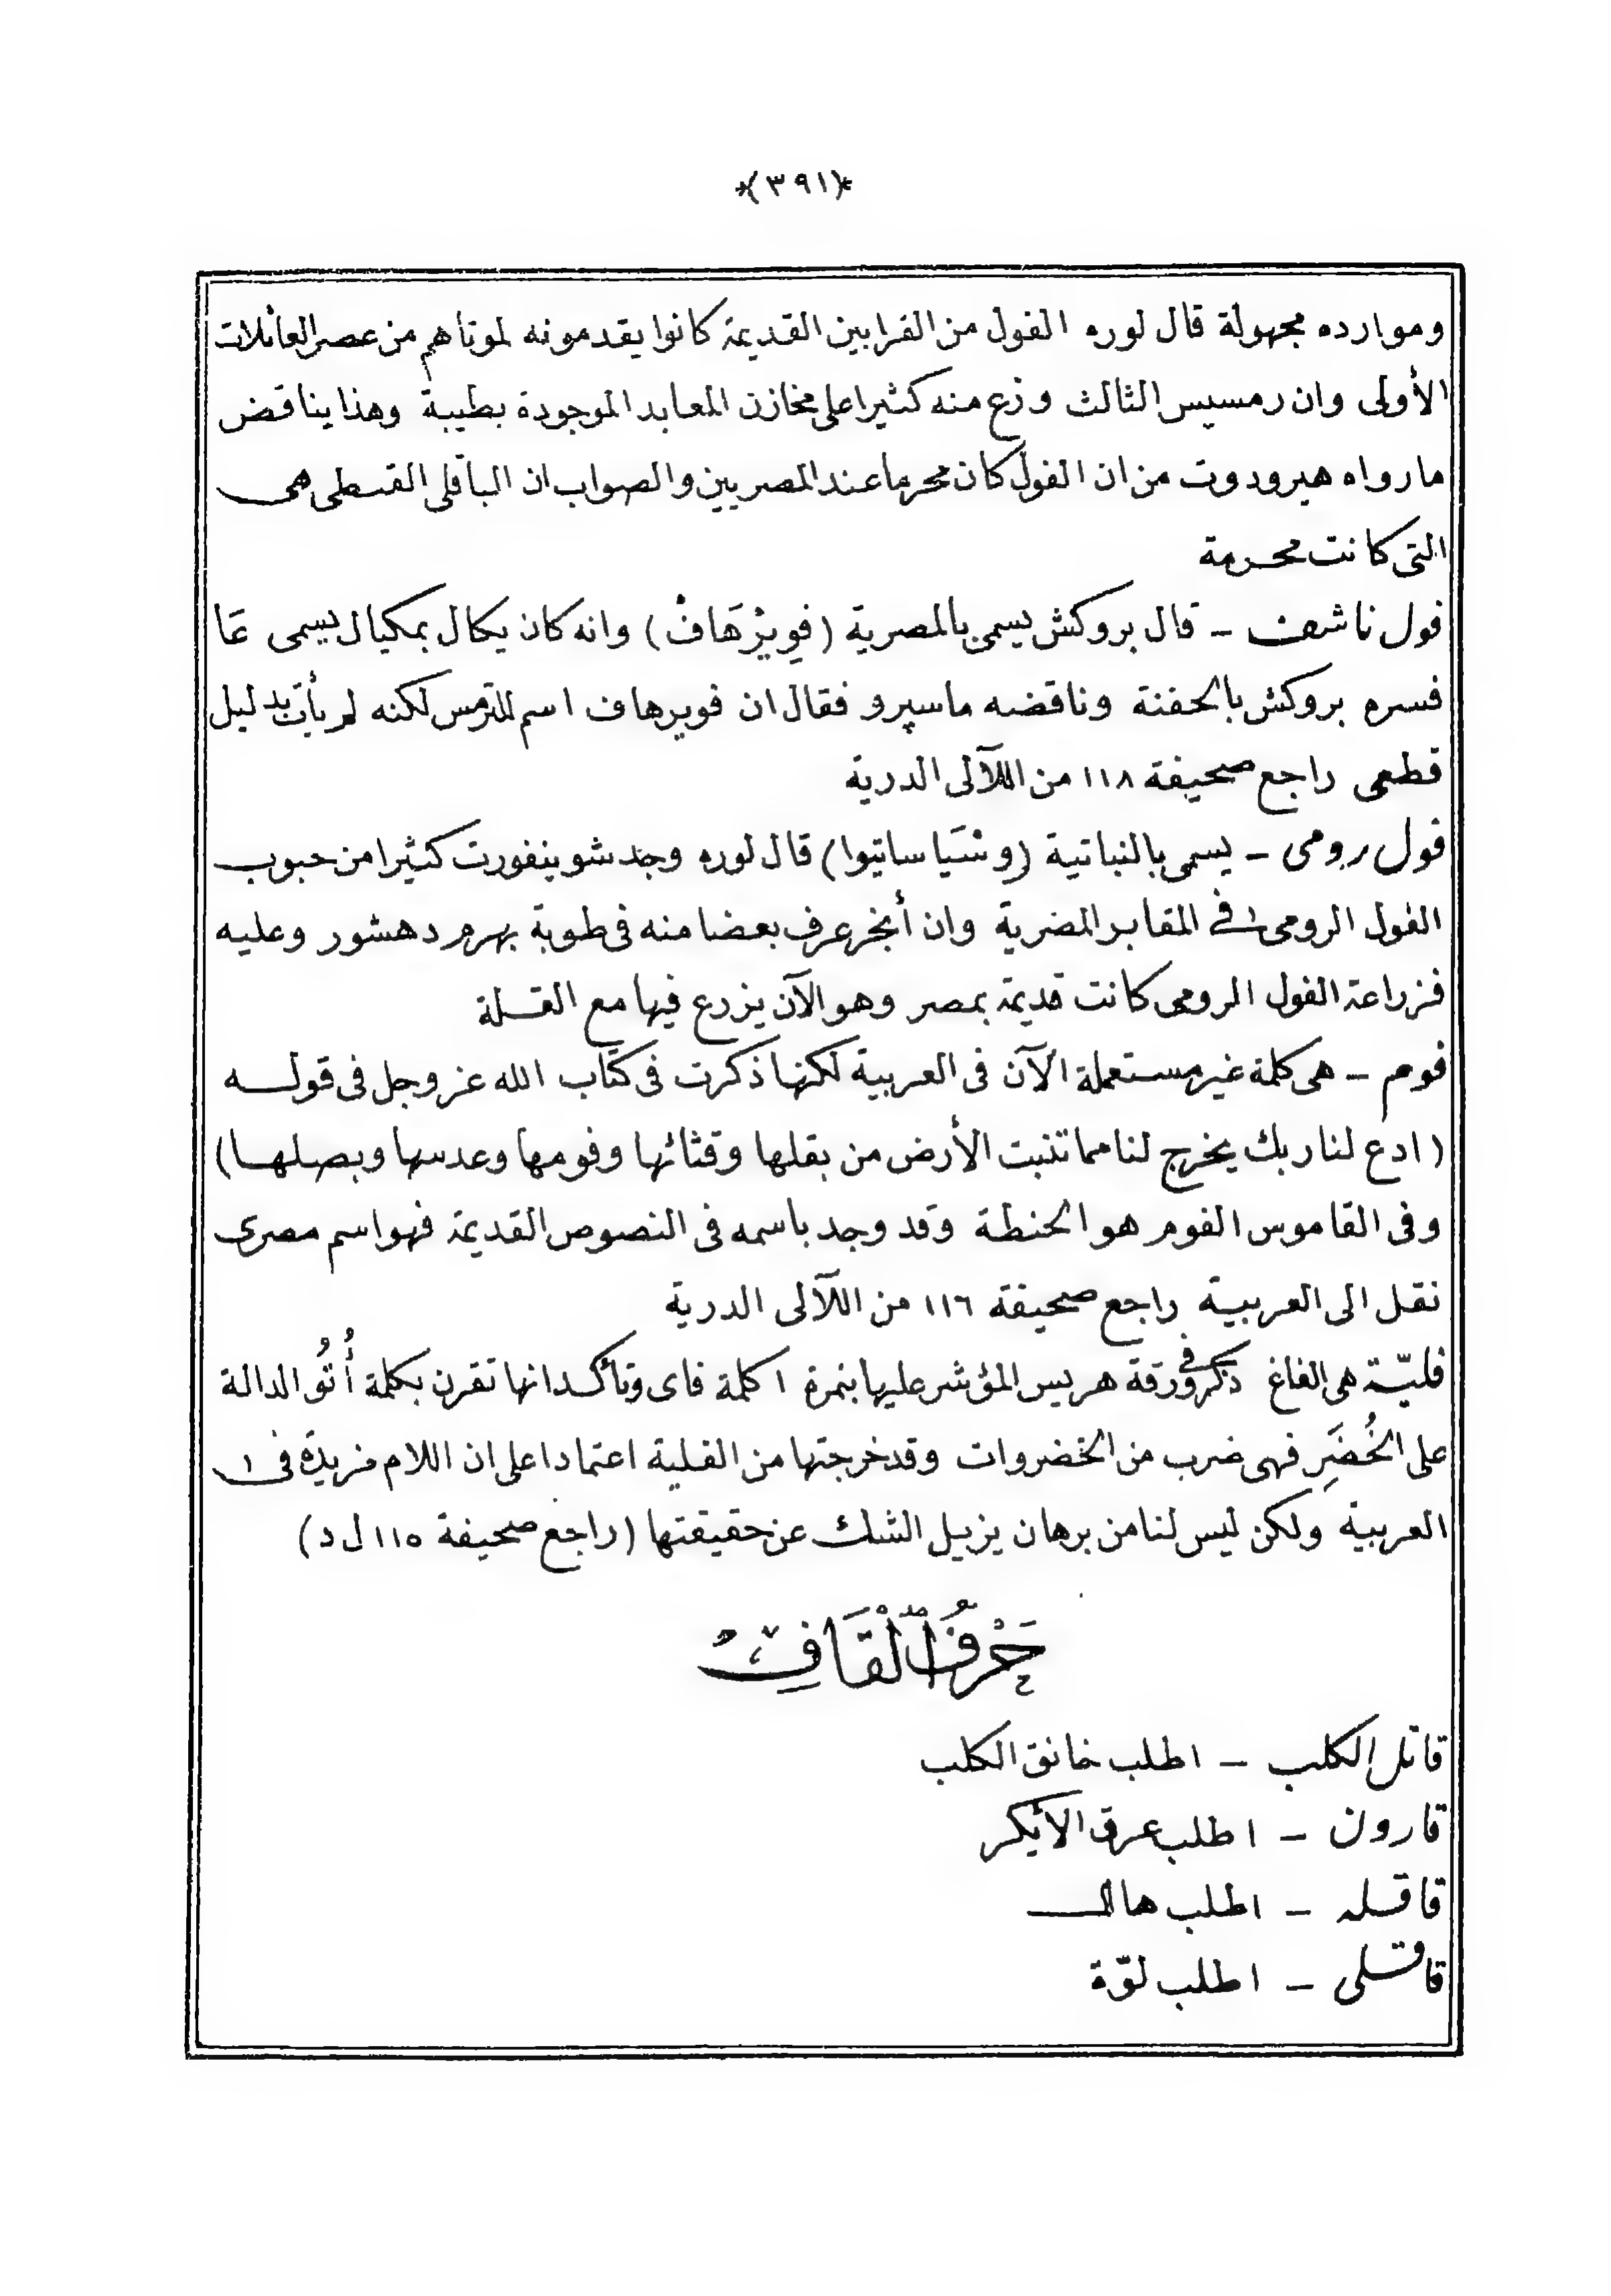 *(٣٩١)*
وموارده مجهولة قال لوره الفول من القرابين القديمة كانوا يقدمونه لموتاهم من عصر العائلات
الأولى وان رمسيس الثالث وزع منه كثيرا على مخازن المعابد الموجودة بطيبة وهذا يناقض
ما رواه هيرودوت من ان الفول كان محرما عند المصريين والصواب ان الباقلى القبطى هى
التى كانت محرمة
فول ناشف – قال بروكش يسمى بالمصرية (فوِيرْهَافْ) وانه كان يكال بمكيال يسمى عَا
فسره بروكش بالحفنة وناقضه ماسپرو فقال ان فويرهاف اسم للترمس لكنه لم يأت بدليل
قطعى راجع صحيفة ١١٨ من اللآلى الدرية
فول رومى – يسمى بالنباتية (وسْيَا ساتيوا) قال لوره وجد شوينفورت كثيرا من حبوب
الفول الرومى فى المقابر المصرية وان أنجر عرف بعضا منه فى طوبة بهرم دهشور وعليه
فزراعة الفول الرومى كانت قديمة بمصر وهو الآن يزرع فيها مع القلة
فوم – هى كلمة غير مستعملة الآن فى العربية لكنها ذكرت فى كتاب الله عز وجل فى قوله
(ادع لنا ربك يخرج لنا مما تنبت الأرض من بقلها وقثائها وفومها وعدسها وبصلها)
وفى القاموس الفوم هو الحنطة وقد وجد باسمه فى النصوص القديمة فهو اسم مصرى
نقل الى العربية راجع صحيفة ١١٦ من اللآلى الدرية
فليّة هى الفاغ ذكر فى ورقة هريس المؤشر عليها بنمرة ١ كلمة فاى وتأكد انها تقرن بكلمة أُتُو الدالة
على الخُضَرِ فهى ضرب من الخضروات وقد خرجتها من الفلية اعتمادا على ان اللام مزيدة فى
العربية ولكن ليس لنا من برهان يزيل الشك عن حقيقتها (راجع صحيفة ١١٥ ل د)
حَرْفُ الْقَافِ
قاتل الكلب – اطلب خانق الكلب
قارون – اطلب عرق الايكر
قاقله – اطلب هال
قاقلى – اطلب لوّة